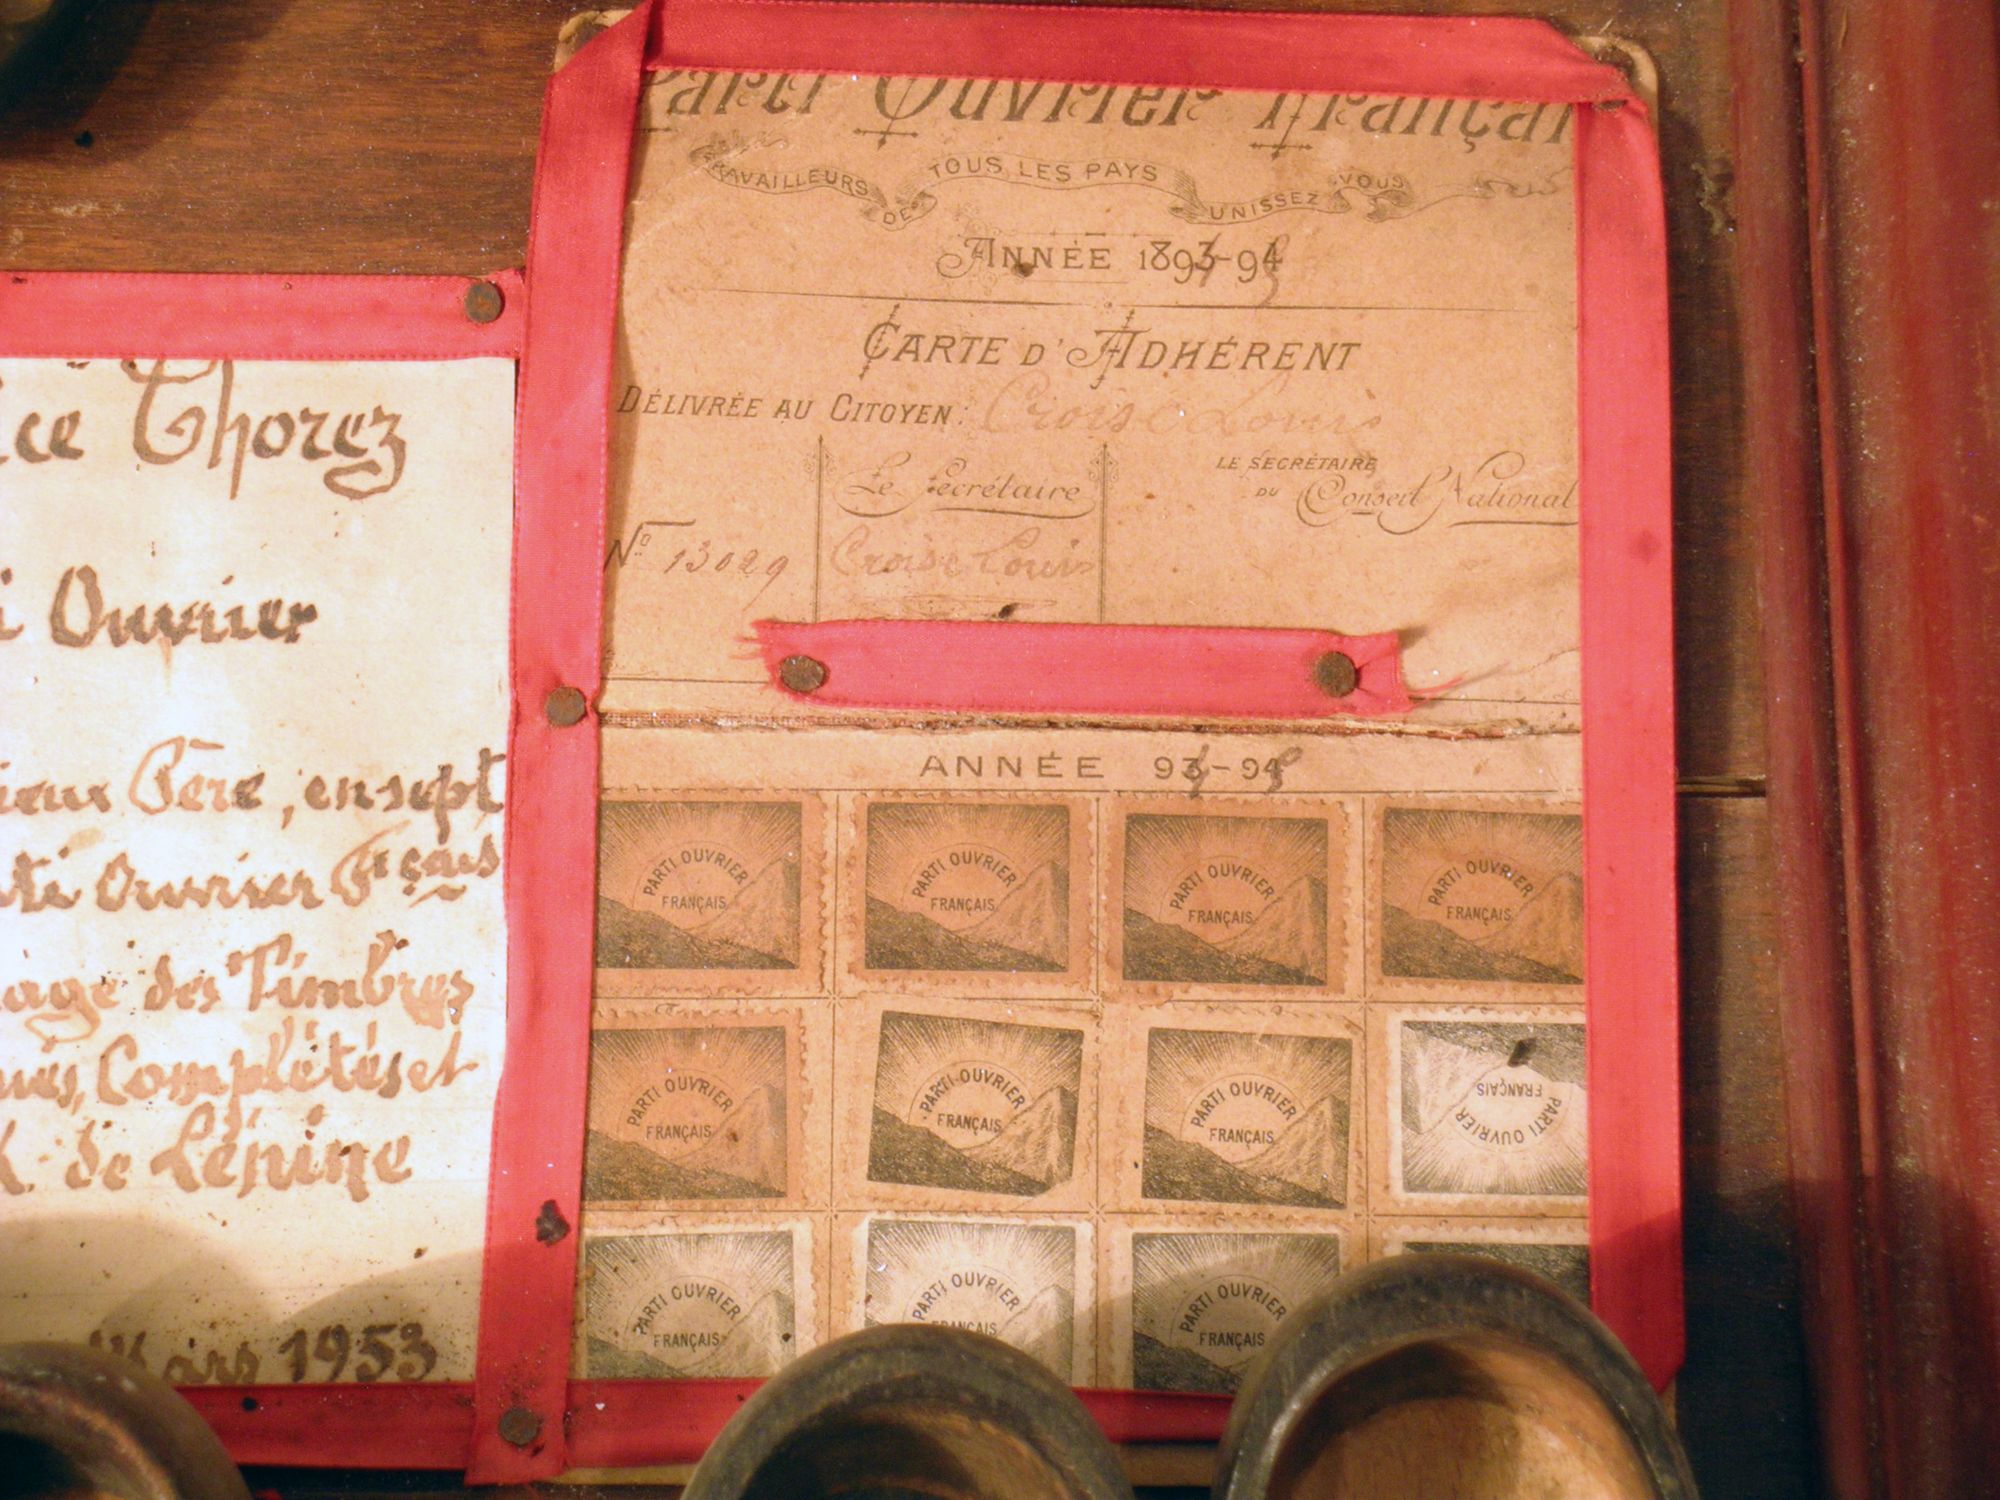 ce Thorez
Ouvrier
Père, en sept
Ouvrier Fçais
des Timbres
Complétés et
de Lénine
Mars 1953
Parti Ouvrier Françai
TRAVAILLEURS DE TOUS LES PAYS UNISSEZ VOUS
ANNÉE 1893-94
CARTE D'ADHÉRENT
DÉLIVRÉE AU CITOYEN: Croise Louis
Le Secrétaire
LE SECRÉTAIRE
DU Conseil National
No 13029
Croise Louis
ANNÉE 93-94
PARTI OUVRIER FRANÇAIS
PARTI OUVRIER FRANÇAIS
PARTI OUVRIER FRANÇAIS
PARTI OUVRIER FRANÇAIS
PARTI OUVRIER FRANÇAIS
PARTI OUVRIER FRANÇAIS
PARTI OUVRIER FRANÇAIS
PARTI OUVRIER FRANÇAIS
PARTI OUVRIER FRANÇAIS
PARTI OUVRIER FRANÇAIS
PARTI OUVRIER FRANÇAIS